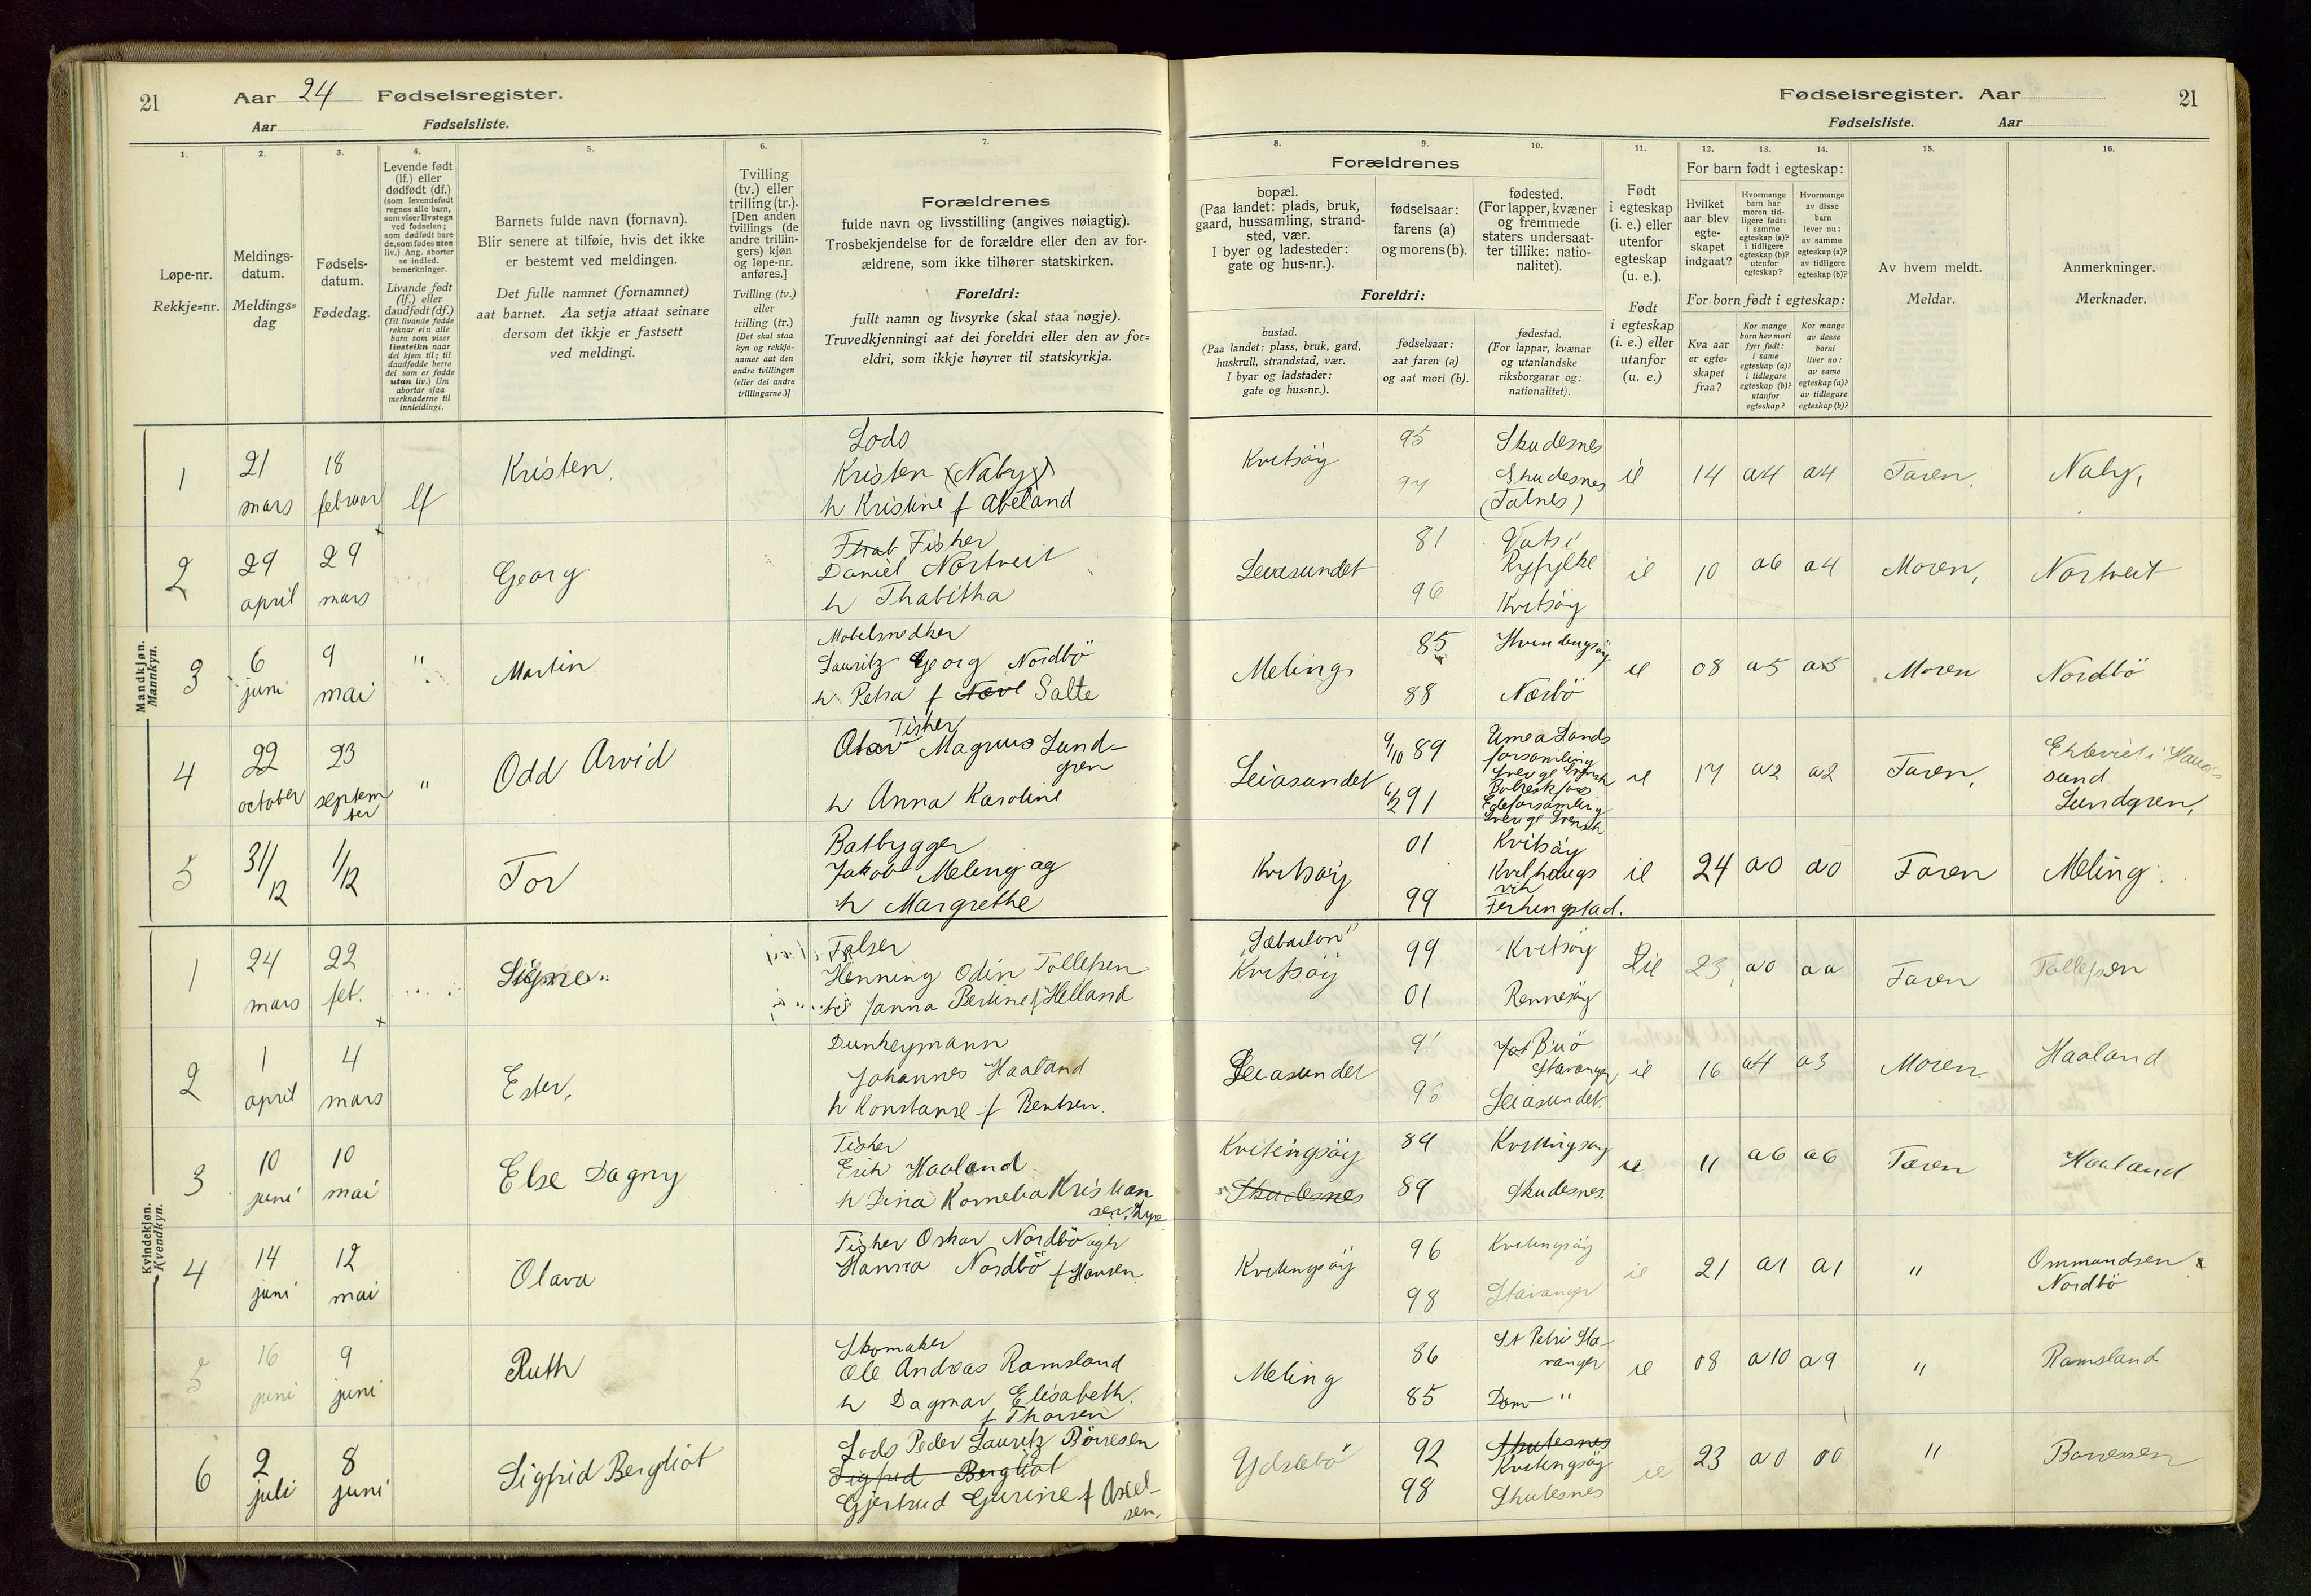 21
Aar 24 Fødselsregister.
Aar Fødselsliste.
Fødselsregister. Aar
21
Fødselsliste. Aar
1. 2. 3. 4. 5. 6. 7. 8. 9. 10. 11. 12. 13. 14. 15. 16.
Løpe-nr.
Rekkje=nr.
Meldings-
datum.
Meldings=
dag
Fødsels-
datum.
Fødedag.
Levende født
(lf.) eller
dødfødt (df.)
(som levendefødt
regnes alle barn,
som viser livstegn
ved fødselen;
som dødfødt bare
de, som fødes uten
liv.) Ang. aborter
se indled.
bemerkninger.
Livande født
(lf.) eller
daudfødt (df.)
(Til livande fødde
reknar ein alle
barn som viser
livsteikn naar
dei kjem til; til
daudfødde berre
dei som er fødde
utan liv.) Um
abortar sjaa
merknaderne til
innleidingi.
Barnets fulde navn (fornavn).
Blir senere at tilføie, hvis det ikke
er bestemt ved meldingen.
Det fulle namnet (fornamnet)
aat barnet. Aa setja attaat seinare
dersom det ikkje er fastsett
ved meldingi.
Tvilling
(tv.) eller
trilling (tr.).
[Den anden
tvillings (de
andre trillin-
gers) kjøn
og løpe-nr.
anføres.]
Tvilling (tv.)
eller
trilling (tr.)
[Det skal staa
kyn og rekkje-
numer aat den
andre tvillingen
(eller dei andre
trillingarne.)]
Forældrenes
fulde navn og livsstilling (angives nøiagtig).
Trosbekjendelse for de forældre eller den av for-
ældrene, som ikke tilhører statskirken.
Foreldri:
fullt namn og livsyrke (skal staa nøgje).
Truvedkjenningi aat dei foreldri eller den av for=
eldri, som ikkje høyrer til statskyrkja.
Forældrenes
bopæl.
(Paa landet: plads, bruk,
gaard, hussamling, strand-
sted, vær.
I byer og ladesteder:
gate og hus-nr.).
fødselsaar:
farens (a)
og morens (b).
fødested.
(For lapper, kvæner
og fremmede
staters undersaat-
ter tillike: natio-
nalitet).
Foreldri:
bustad.
(Paa landet: plass, bruk, gard,
huskrull, strandstad, vær.
I byar og ladstader:
gate og hus=nr.).
fødselsaar:
aat faren (a)
og aat mori (b).
fødestad.
(For lappar, kvænar
og utanlandske
riksborgarar og:
nationalitet).
Født
i egteskap
(i. e.) eller
utenfor
egteskap
(u. e.).
Født
i egteskap
(i. e.) eller
utanfor
(u. e.)
For barn født i egteskap:
Hvilket
aar blev
egte-
skapet
indgaat?
Hvormange
barn har
moren tid-
ligere født:
i samme
egteskap (a)?
i tidligere
egteskap (b)?
utenfor
egteskap?
Hvormange
av disse
barn
lever nu:
av samme
egteskap (a)?
av tidligere
egteskap (b)?
For born født i egteskap:
Kva aar
er egte=
skapet
fraa?
Kor mange
born hev mori
fyrr født:
i same
egteskap (a)?
i tidlegare
egteskap (b)?
utanfor
egteskap?
Kor mange
av desse
borni
liver no:
av same
egteskap (a)?
av tidlegare
egteskap (b)?
Av hvem meldt.
Meldar.
Anmerkninger.
Merknader.
Mandkjøn.
Mannkyn.
1 21 mars 18 februar lf Kristen.
Lods
Kristen (Naby)
h Kristine f Abeland
Kvitsöy 95 Skudesnes
94 Skudesnes
(Falnes)
ie 14 a4 a4 Faren, Naby,
2 29 april 29 mars Georg
Fisker
Daniel Nortveit
h Thabitha
Leiasundet 81 Vats i
Ryfylke
96 Kvitsöy
ie 10 a6 a4 Moren, Nortveit
3 6 juni 9 mai " Martin
Møbelsnedker
Lauritz Georg Nordbö
h Petra f Salte
Meling 85
88 Nærbö
ie 08 a5 a5 Moren Nordbö
4 22 october 23 septem
ber " Odd Arvid
Fisker
Olav Magnus Lund-
gren
h Anna Karoline
Leiasundet 9/10 89 Umea Lands
forsamling
Sverige Svensk
91
Edeforsamling
Sverige Svensk
ie 17 a2 a2 Faren,
sund
Lundgren,
5 31/12 1/12 Tor
Batbygger
Jakob Meling og
h Margrethe
Kvitsöy 01 Kvitsöy
99
Ferkingstad.
ie 24 a0 a0 Faren Meling.
Kvindekjøn.
Kvendkyn.
1 24 mars 22 feb. Signe
Henning Odin Tollefsen
h Janna Bertine f Helland
Kvitsöy 99 Kvitsöy
01 Rennesöy
ie 23 a0 aa Faren Tollefsen
2 1 april 4 mars Ester,
Dunkeymann
Johannes Haaland
h Konstanse f Bentsen.
Leiasundet
Stavanger
96 Leiasundet.
ie 16 a4 a3 Moren Haaland
3 10 juni 10 mai Else Dagny
Fisker
Erik Haaland
h Dina Kornelia Kristian
sen,
Kvitingsöy 89 Kvitingsöy
Skudesnes 89 Skudesnes.
ie 11 a6 a6 Faren Haaland
4 14 juni 12 mai Olava
Fisker Oskar Nordbö og h
Hanna Nordbö f Hansen
Kvitingsöy 96 Kvitingsöy
98 Stavanger
ie 21 a1 a1 " Ommundsen
Nordbö
5 16 juni 9 juni Ruth
Skomaker
Ole Andreas Ramsland
h Dagmar Elisabeth.
f Thorsen
Meling 86 St Petri Sta-
vanger
85 Dom "
ie 08 a10 a9 " Ramsland
6 2 juli 8 juni Sigfrid Bergliot
Lods Peder Lauritz Börresen
Sigfrid Bergliot
Gjertrud Gurine f Axel-
sen.
Ydstebö 92 Skutesnes
Kvitingsöy
98 Skutesnes
ie 23 a0 00 " Børresen